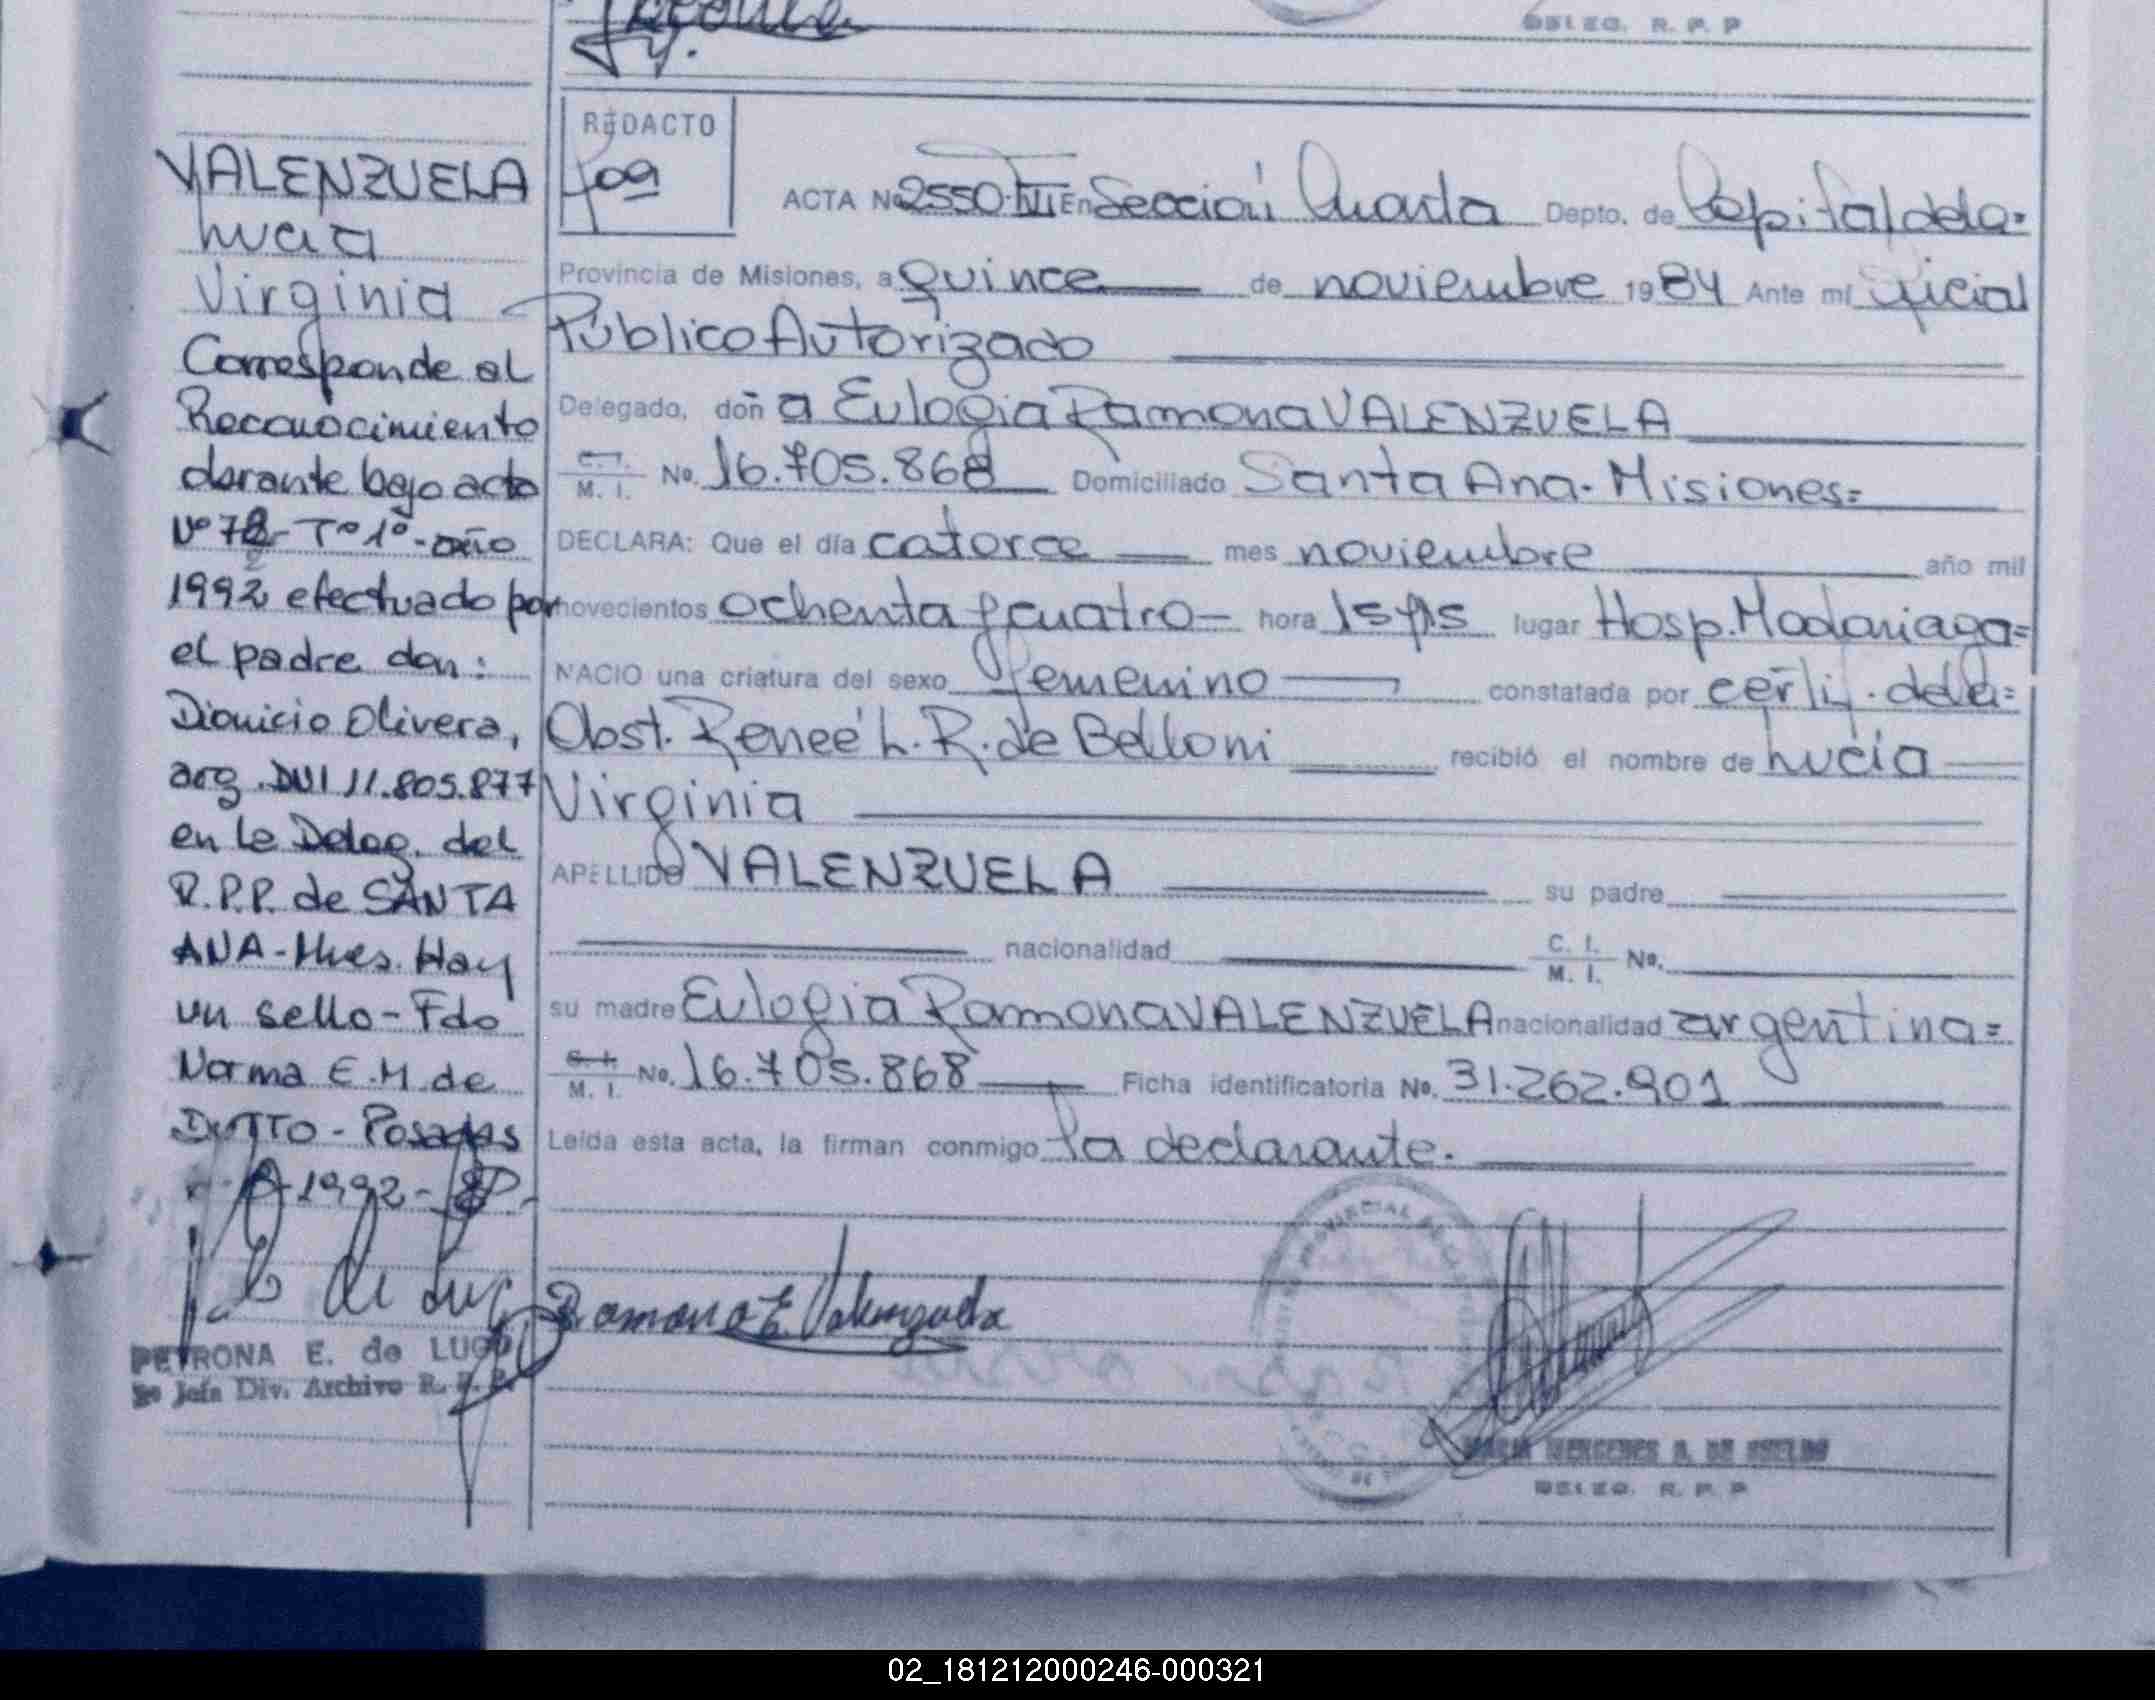 DELEG. R. P. P
REDACTO
VALENZUELA
Lucia
Virginia
Corresponde al
Reconocimiento
dorante bajo acta
Nº 72- Tº 1º- año
1992 efectuado por
el padre don:
Dionicio Olivera,
arg. DNI 11.805.877
en la Deleg. del
R.P.P. de SANTA
ANA-Mnes. Hay
un sello- Fdo
Norma E.M. de
DUTTO - Posadas
1992-
PETRONA E. de LUGO
Jefa Div. Archivo R. P. P.
ACTA Nº 2550-VII En Sección Cuarta Depto. de Capital de la=
Provincia de Misiones, a quince de noviembre 1984 Ante mí Oficial
Público Autorizado
Delegado, doña Eulogia Ramona VALENZUELA
C. I. M. I. No. 16.705.868 Domiciliado Santa Ana- Misiones=
DECLARA: Que el día catorce mes noviembre año mil
novecientos ochenta y cuatro- hora 15 y 15 lugar Hosp. Madariaga=
NACIO una criatura del sexo femenino constatada por certif. de la=
Obst. Reneé L. R. de Belloni recibió el nombre de Lucia
Virginia
APELLIDO VALENZUELA su padre
nacionalidad C. I. M. I. No.
su madre Eulogia Ramona VALENZUELA nacionalidad argentina=
C. I. M. I. No. 16.705.868 Ficha identificatoria No. 31.262.901
Leida esta acta, la firman conmigo la declarante.
Ramona E. Valenzuela
DELEG. R. P. P
02_181212000246-000321